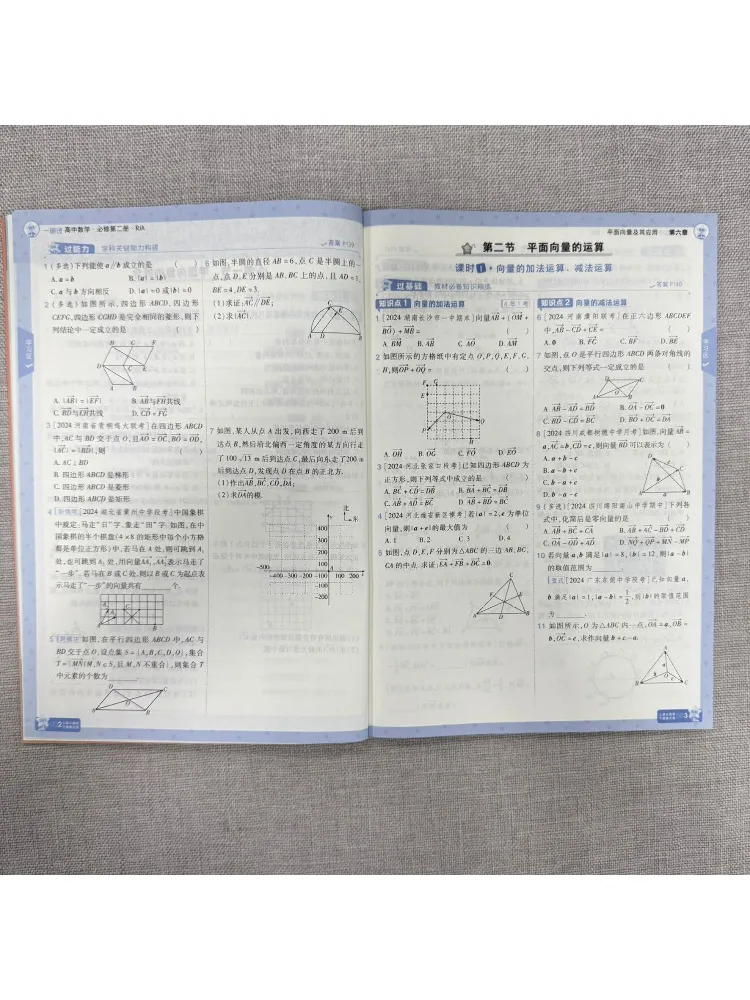 一遍过 高中数学·必修第二册·RJA
过能力 学科关键能力构建
答案 P139
1 (多选)下列能使a∥b成立的是 ( )
A. a=b B. |a|=|b|
C. a与b方向相反 D. |a|=0或|b|=0
2 (多选)如图所示,四边形ABCD,四边形
CEFG,四边形CGHD是完全相同的菱形,则下
列结论中一定成立的是 ( )
A. |AB|=|EF| B. AB与FH共线
C. BD与EH共线 D. CD=FG
3 [2024河南省青桐鸣大联考]在四边形ABCD
中,AC与BD交于点O,且AO=OC,BO=OD,
|AC|=|BD|,则
A. AC⊥BD
B. 四边形ABCD是梯形
C. 四边形ABCD是菱形
D. 四边形ABCD是矩形
4 [2024湖北省黄州中学段考]中国象棋
中规定:马走"日"字,象走"田"字.如图,在中
国象棋的半个棋盘(4×8的矩形中每个小方格
都是单位正方形)中,若马在A处,则可跳到A₁
处,也可跳到A₂处,用向量AA₁,AA₂表示马走了
"一步".若马在B或C处,则以B或C为起点表
示马走了"一步"的向量共有 个.
5 如图,在平行四边形ABCD中,AC与
BD交于点O,设点集S={A,B,C,D,O},集合
T={MN|M,N∈S,且M,N不重合},则集合T
中元素的个数为 .
6 如图,半圆的直径AB=6,点C是半圆上的一
点,点D,E分别是AB,BC上的点,且AD=1,
BE=4,DE=3.
(1)求证:AC∥DE;
(2)求|AC|.
7 如图,某人从点A出发,向西走了200 m后到
达点B,然后给北偏西一定角度的某方向行走
了100√13 m后到达点C,最后向东走了200 m
后到达点D,发现点D在点B的正北方.
(1)作出AB,BC,CD,DA;
(2)求DA的模.
北
东
400
300
200
100
-500
-400 -300 -200 -100
100 200
-100
-200
2
平面向量及其应用 第六章
第二节 平面向量的运算
课时1·向量的加法运算、减法运算
过基础 教材必备知识精练
答案 P140
知识点1 向量的加法运算
1 [2024湖南长沙市一中期末]向量AB+(OM+
BO)+MB= ( )
A. BM B. AB C. AO D. AM
2 如图所示的方格纸中有定点O,P,Q,E,F,G,
H,则OP+OQ= ( )
A. OH B. OG C. FO D. EO
3 [2024河北张家口段考]已知四边形ABCD为
正方形,则下列等式中成立的是 ( )
A. BC+CD=DB B. BA+BC=DB
C. AB+AC=BC D. AB+BD=BC
4 [2024河北雄安新区模考]若|a|=2,e为单位
向量,则|a+e|的最大值为 ( )
A. 1 B. 2 C. 3 D. 4
5 如图,点D,E,F分别为△ABC的三边AB,BC,
CA的中点.求证:EA+FB+DC=0.
知识点2 向量的减法运算
6 [2024河南濮阳联考]在正六边形ABCDEF
中,AB-CD+CE= ( )
A. 0 B. FC C. BF D. BE
7 如图,点O是平行四边形ABCD两条对角线的
交点,则下列等式一定成立的是 ( )
A. AB-AD=BD B. OA-OC=0
C. BD-CD=BC D. BO+OC=DA
8 [2024四川成都树德中学月考]如图,向量AB=
a,AC=b,CD=c,则向量BD可以表示为( )
A. a+b-c
B. a-b+c
C. b-a+c
D. b-a-c
9 (多选)[2024四川绵阳南山中学期中]下列各
式中,化简后是零向量的是 ( )
A. AB+BC+CA B. AB+AC-BD+CD
C. OA-OD+AD D. NQ+QP+MN-MP
10 若向量a,b满足|a|=8,|b|=12,则|a-b|
的取值范围为 .
[变式][2024广东东莞中学段考]已知向量a,
b满足|a|=1,|a-b|=1/2,则|b|的取值范围
为 .
11 如图所示,O为△ABC内一点,OA=a,OB=
b,OC=c,求作向量b+c-a.
3